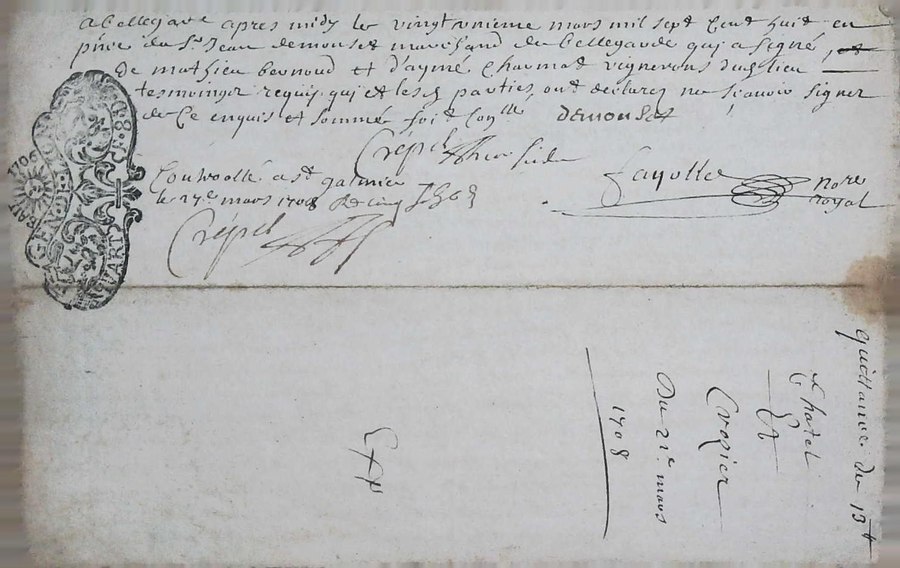 a bellegarde apres midy le vingt unieme mars mil sept cent huit en
pñce du Sr Jean demouset marchand du bellegarde qui a signé et
de mathieu bernoud et d'aymé Charmat vignerons dud lieu
tesmoings requis qui et lesd parties ont declarez ne scavoir signer
de ce enquis et sommé foi Coll demouset
Crépet
Fayolle nore royal
Controollé a st galmier
le 27e mars 1708 Re cinq s
Crépet
GENERALITE DE LYON
QUARTS
1706
quittance de 13 ₶
Chatel
Et
Crozier
Du 21e mars
1708
Exp